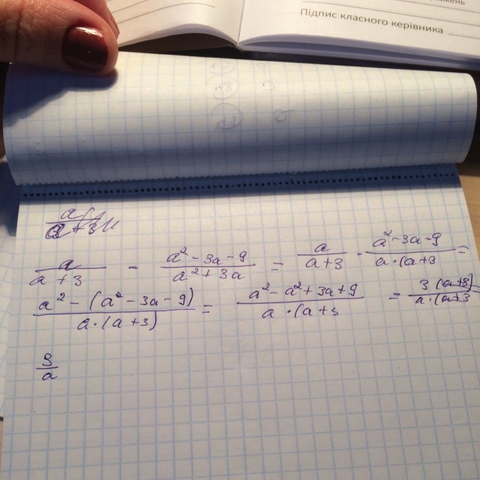 Підпис класного керівника
a/(a+3) - (a²-3a-9)/(a²+3a) = a/(a+3) - (a²-3a-9)/(a·(a+3) =
(a²-(a²-3a-9))/(a·(a+3)) = (a²-a²+3a+9)/(a·(a+3) = 3(a+3)/(a·(a+3) =
3/a